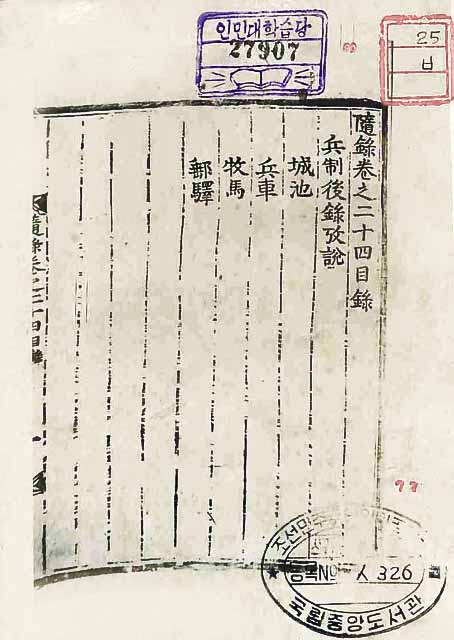 인민대학습당
27907
25
ㅂ
隨錄卷之二十四目錄
兵制後錄攷說
城池
兵車
牧馬
郵驛
隨錄卷之二十四目錄
一
77
조선민주주의인민
등록No 人 326
국립중앙도서관